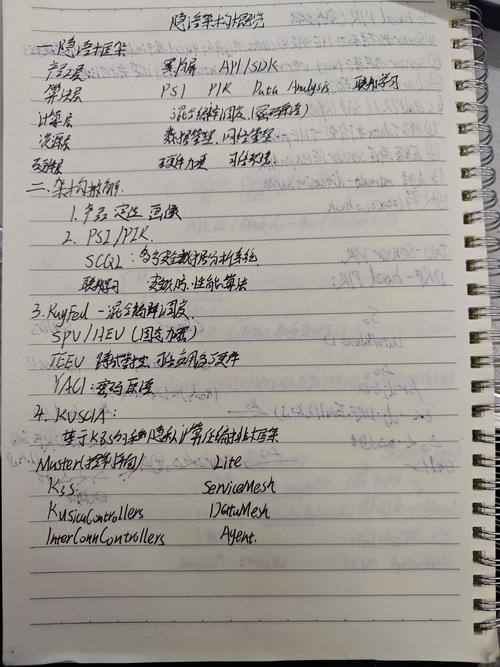 隐语架构概览
一、隐语框架
产品层 黑屏 API/SDK
算法层 PSI PIR Data Analysis 联邦学习
计算层 混合编译调度 (密码原语)
资源层 数据管理、网络管理
硬件层 硬件加速 可信
二、架构拆解
1. 产品 定位 画像
2. PSI/PIR.
SCQL: 多方安全数据分析系统
联邦学习
3. RayFed - 混合编译调度
SPU/HEU (同态加密)
TEEU
YACL: 密码原语
4. KUSCIA:
基于K3s的隐私计算任务编排框架
Master(控制平面) Lite
K3s ServiceMesh
KusciaControllers DataMesh
InterConnControllers Agent.